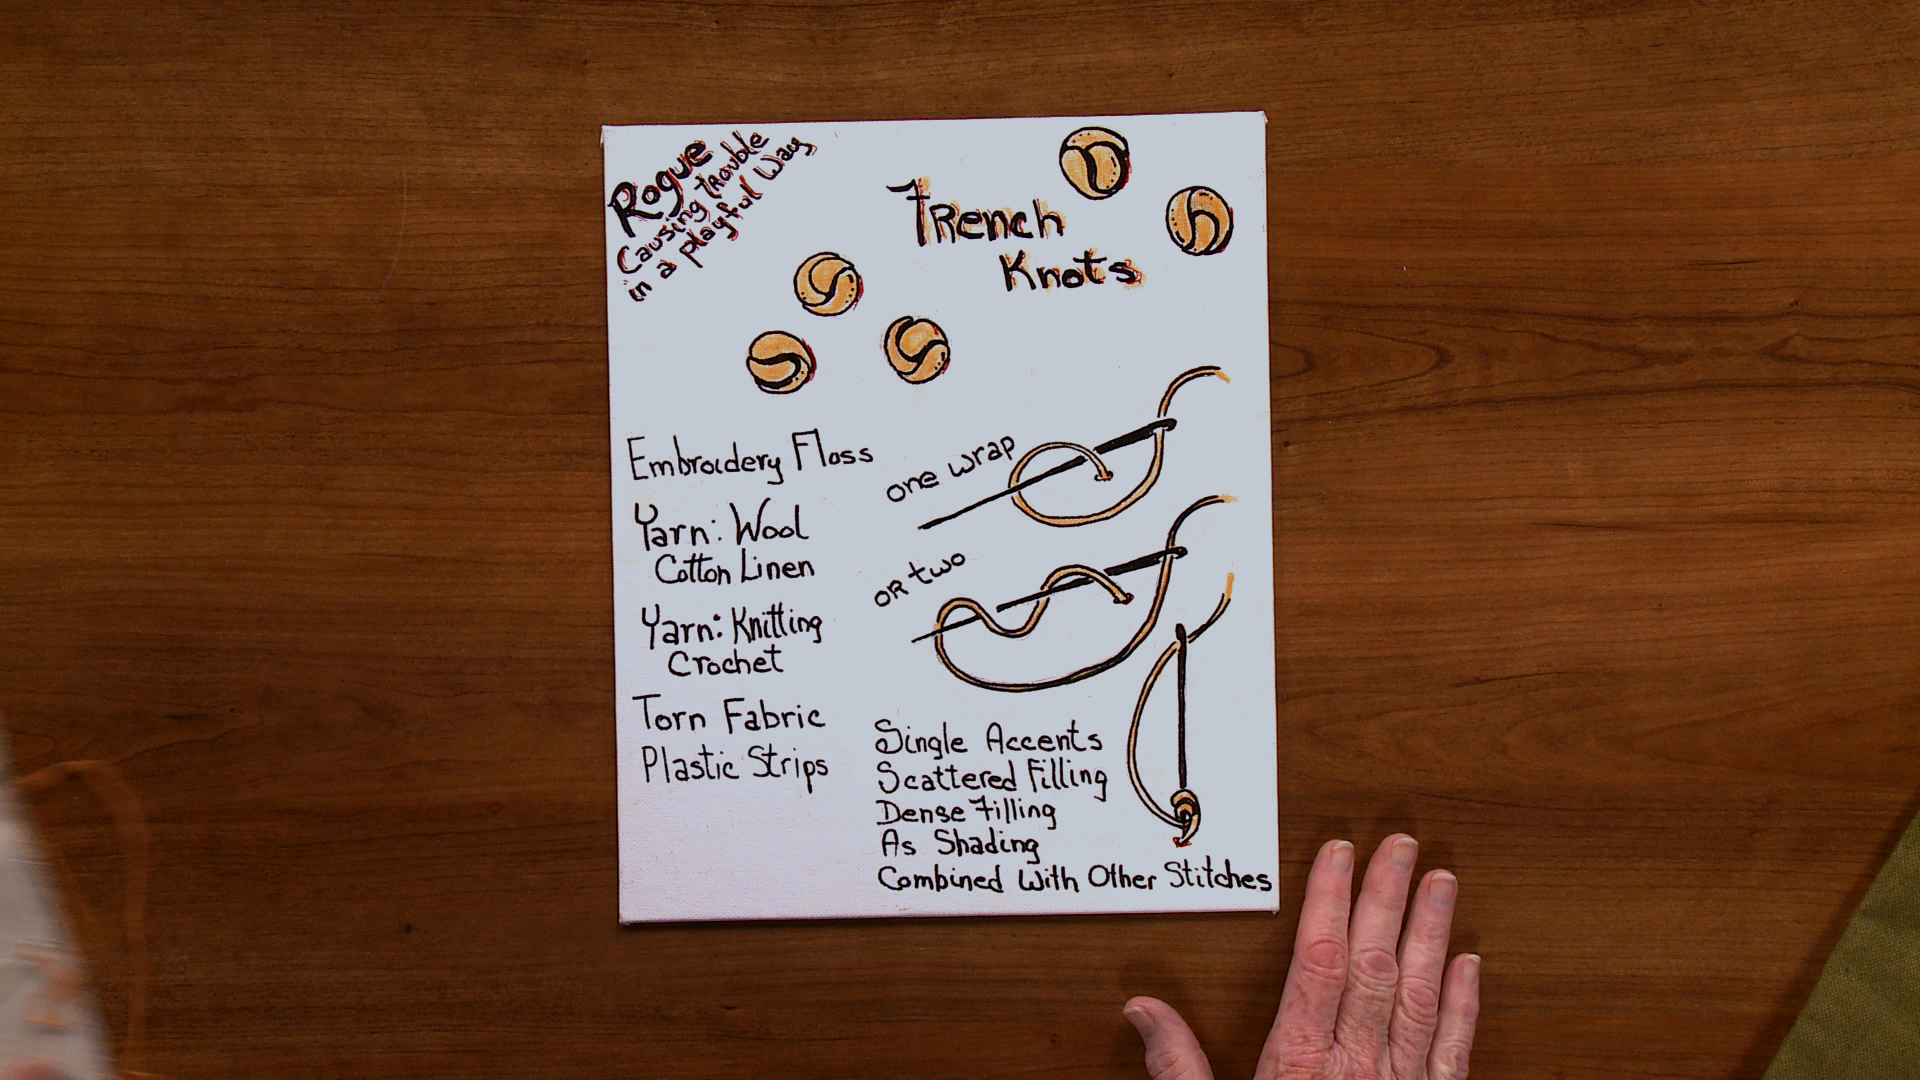 Rogue
Causing Trouble
in a playful Way
French
Knots
Embroidery Floss
Yarn: Wool
Cotton Linen
Yarn: Knitting
Crochet
Torn Fabric
Plastic Strips
one wrap
or two
Single Accents
Scattered Filling
Dense Filling
As Shading
Combined With Other Stitches